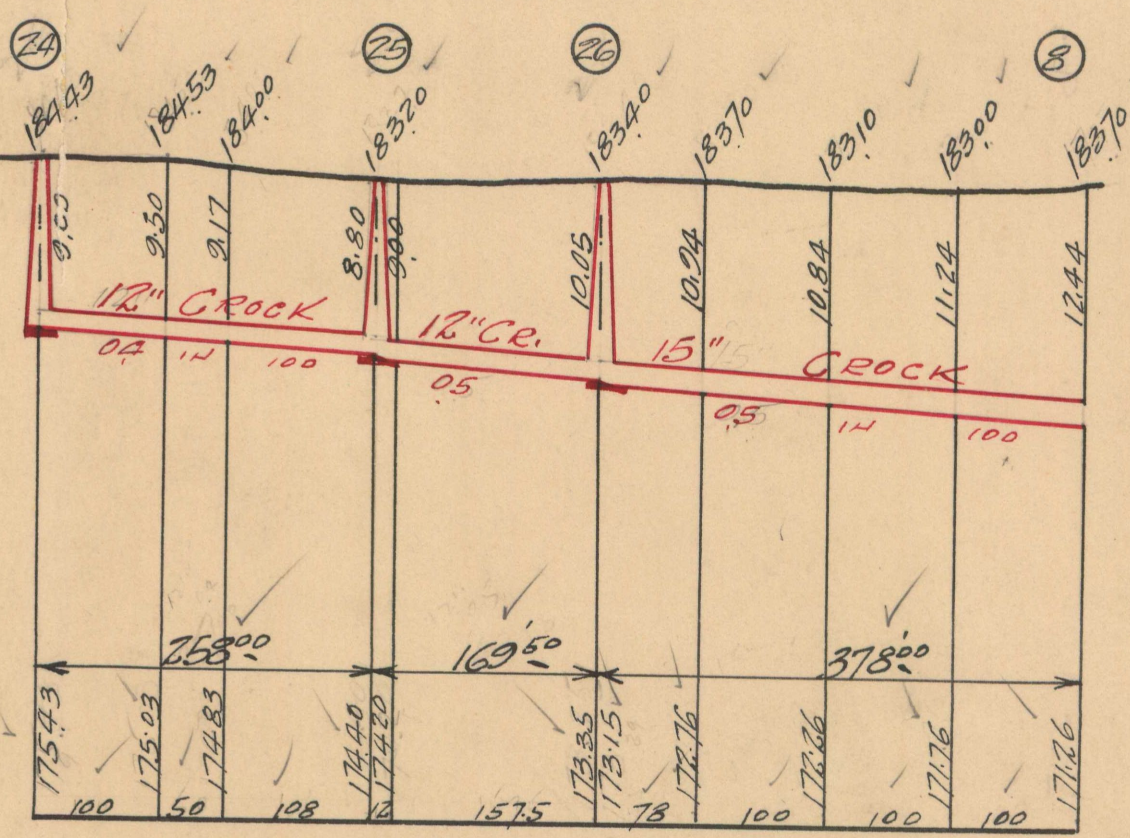 24 25 26 8
184.43 184.53 184.00 183.20 183.40 183.70 183.10 183.00 183.70
9.50 9.17 8.80 9.00 10.05 10.94 10.84 11.24 12.44
12" CROCK 12" CR. 15" CROCK
0.4 IN 100 0.5 0.5 IN 100
258.00 169.50 378.00
175.43 175.03 174.83 174.40 174.20 173.35 173.15 172.76 172.26 171.76 171.26
100 50 108 12 157.5 78 100 100 100